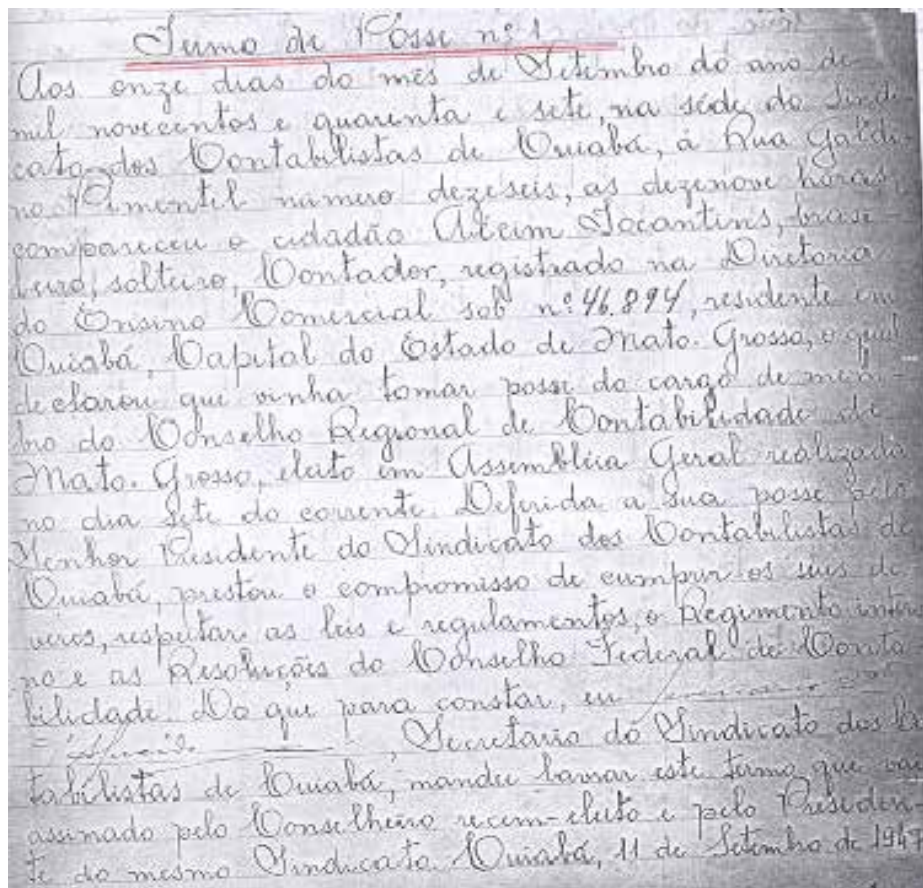 Termo de Posse nº 1
Aos onze dias do mês de Setembro do ano de
mil novecentos e quarenta e sete, na séde do Sindi-
cato dos Contabilistas de Cuiabá, á Rua Galdi-
no Pimentel numero dezeseis, as dezenove horas,
compareceu o cidadão Ateim Tocantins, brasi-
leiro, solteiro, Contador, registrado na Diretoria
do Ensino Comercial sob nº 46.894, residente em
Cuiabá, Capital do Estado de Mato-Grosso, o qual
declarou que vinha tomar posse do cargo de mem-
bro do Conselho Regional de Contabilidade de
Mato-Grosso, eleito em Assembléia Geral realizada
no dia sete do corrente. Deferida a sua posse pelo
Senhor Presidente do Sindicato dos Contabilistas de
Cuiabá, prestou o compromisso de cumprir os seus de
veres, respeitar as leis e regulamentos, o Regimento inter
no e as Resoluções do Conselho Federal de Conta
bilidade. Do que para constar, eu
, Secretario do Sindicato dos Co
tabilistas de Cuiabá, mandei lavrar este termo que vai
assinado pelo Conselheiro recem-eleito e pelo Presiden
te do mesmo Sindicato. Cuiabá, 11 de Setembro de 1947